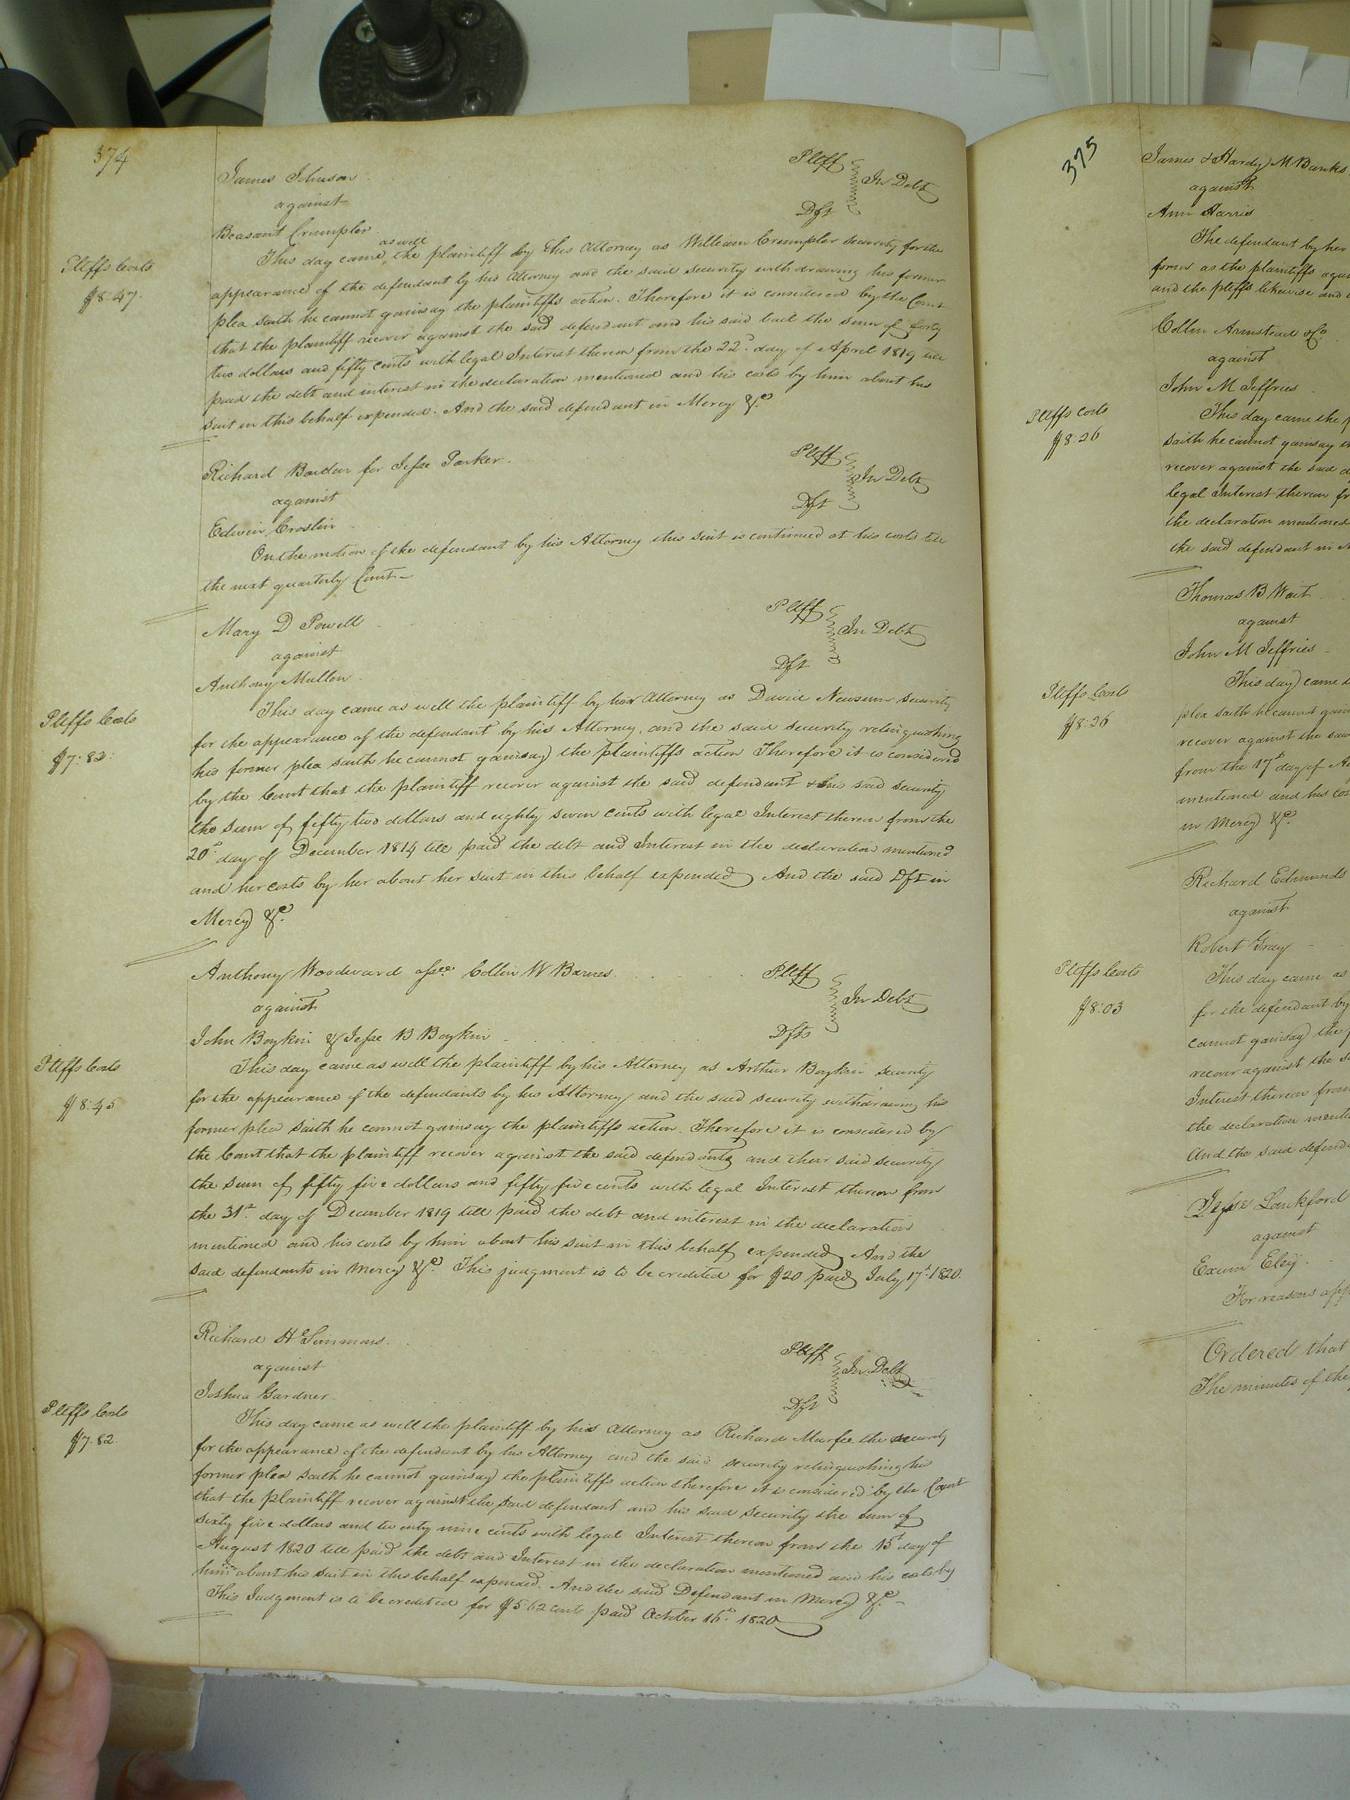 374
James Johnson Pltff
against In Debt
Beasant Crumpler Dft
as well
This day came, the plaintiff by his Attorney as William Crumpler security for the
Pltffs Costs
$8.47.
appearance of the defendant by his Attorney and the said security withdrawing his former
plea saith he cannot gainsay the plaintiffs action. Therefore it is considered by the Court
that the plaintiff recover against the said defendant and his said bail the sum of forty
two dollars and fifty cents with legal Interest thereon from the 22d. day of April 1819 till
paid the debt and interest in the declaration mentioned and his costs by him about his
suit in this behalf expended. And the said defendant in Mercy &c.
Richard Barden for Jesse Parker. Pltff
against In Debt
Edwin Croslin Dft
On the motion of the defendant by his Attorney this suit is continued at his costs till
the next quarterly Court-
Mary D Powell Pltff
against In Debt
Anthony Mullen Dft
This day came as well the plaintiff by her Attorney as David Newsum security
Pltffs Costs
$7.83.
for the appearance of the defendant by his Attorney, and the said security relinquishing
his former plea saith he cannot gainsay the plaintiffs action Therefore it is considered
by the Court that the plaintiff recover against the said defendant & his said security
the sum of fifty two dollars and eighty seven cents with legal Interest thereon from the
20th day of December 1814 till paid the debt and Interest in the declaration mentioned
and her costs by her about her suit in this behalf expended And the said Dft in
Mercy &c.
Anthony Woodward assee Collin W Barnes Pltff
against In Debt
John Boykin & Jesse B Boykin Dfts
This day came as well the plaintiff by his Attorney as Arthur Boykin security
Pltffs Costs
$8.45
for the appearance of the defendants by his Attorney and the said security withdrawing his
former plea saith he cannot gainsay the plaintiffs action. Therefore it is considered by
the Court that the plaintiff recover against the said defendants and their said security
the sum of fifty five dollars and fifty five cents with legal Interest thereon from
the 31st. day of December 1819 till paid the debt and interest in the declaration
mentioned and his costs by him about his suit in this behalf expended And the
said defendants in Mercy &c. This judgment is to be credited for $20 paid July 17th. 1820.
Richard H Simmons. Pltff
against In Debt
Joshua Gardner Dft
This day came as well the plaintiff by his Attorney as Richard Murfee the security
Pltffs Costs
$7.82.
for the appearance of the defendant by his Attorney and the said security relinquishing his
former plea saith he cannot gainsay the plaintiffs action therefore it is considered by the Court
that the plaintiff recover against the said defendant and his said security the sum of
sixty five dollars and twenty nine cents with legal Interest thereon from the 15th day of
August 1820 till paid the debt and Interest in the declaration mentioned and his costs by
him about his suit in this behalf expended. And the said Defendant in Mercy &c.
This Judgment is to be credited for $5.62 cents paid October 16th. 1820
375
James & Hardy M Banks
against
Ann Harris
The defendant by her
form as the plaintiffs again
and the pltffs likewise and
Collin Armstead & Co
against
John M Jeffries
Pltffs costs
$8.26
This day came the
saith he cannot gainsay
recover against the said
legal Interest thereon
the declaration mentioned
the said defendant in
Thomas B Wait
against
John M Jeffries
Pltffs Costs
$8.26
This day came
plea saith he cannot
recover against the said
from the 17th day of
mentioned and his
in Mercy &c.
Richard Edmunds
against
Robert Gray
Pltffs Costs
$8.03
This day came as
for the defendant by
cannot gainsay the
recover against the
Interest thereon from
the declaration
And the said
Jesse Lankford
against
Exum Eley.
For reasons
Ordered that
The minutes of the